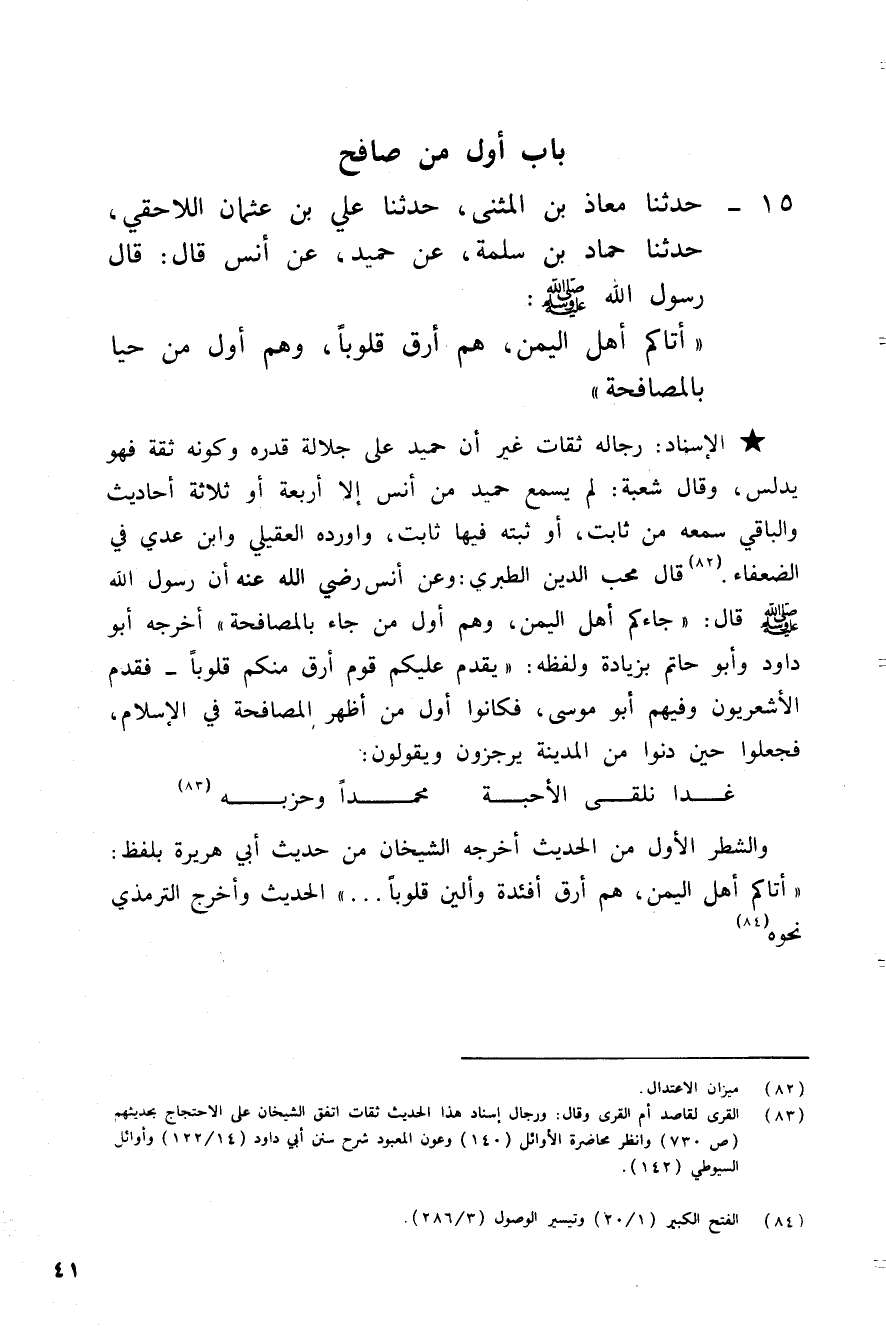 باب أول من صافح
١٥ - حدثنا معاذ بن المثنى، حدثنا علي بن عثمان اللاحقي،
حدثنا حماد بن سلمة، عن حميد، عن أنس قال: قال
رسول الله ﷺ :
« أتاكم أهل اليمن، هم أرق قلوباً، وهم أول من حيا
بالمصافحة »
★ الإسناد: رجاله ثقات غير أن حميد على جلالة قدره وكونه ثقة فهو
يدلس، وقال شعبة: لم يسمع حميد من أنس إلا أربعة أو ثلاثة أحاديث
والباقي سمعه من ثابت، أو ثبته فيها ثابت، واورده العقيلي وابن عدي في
الضعفاء.(٨٢) قال محب الدين الطبري: وعن أنس رضي الله عنه أن رسول الله
ﷺ قال: « جاءكم أهل اليمن، وهم أول من جاء بالمصافحة » أخرجه أبو
داود وأبو حاتم بزيادة ولفظه: « يقدم عليكم قوم أرق منكم قلوباً - فقدم
الأشعريون وفيهم أبو موسى، فكانوا أول من أظهر المصافحة في الإسلام،
فجعلوا حين دنوا من المدينة يرجزون ويقولون:
غـدا نلقـى الأحبـة محمـداً وحزبـه (٨٣)
والشطر الأول من الحديث أخرجه الشيخان من حديث أبي هريرة بلفظ:
« أتاكم أهل اليمن، هم أرق أفئدة وألين قلوباً ... » الحديث وأخرج الترمذي
نحوه(٨٤)
(٨٢) ميزان الاعتدال.
(٨٣) القرى لقاصد أم القرى وقال: ورجال إسناد هذا الحديث ثقات اتفق الشيخان على الاحتجاج بحديثهم
(ص ٧٣٠) وانظر محاضرة الأوائل (١٤٠) وعون المعبود شرح سنن أبي داود (١٢٢/١٤) وأوائل
السيوطي (١٤٢).
(٨٤) الفتح الكبير (٢٠/١) وتيسير الوصول (٢٨٦/٣).
٤١